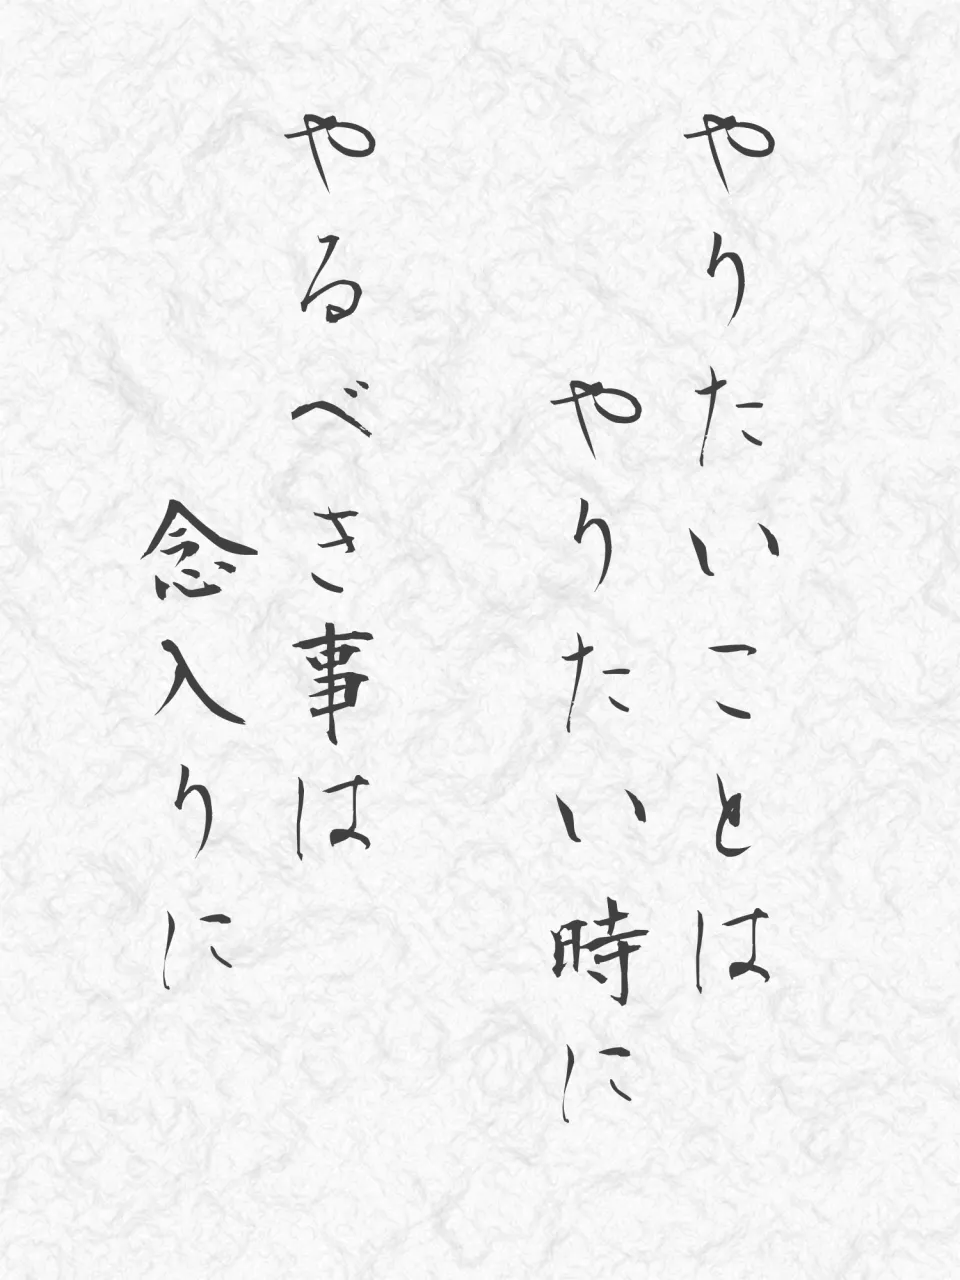 やりたいことは
やりたい時に
やるべき事は
念入りに